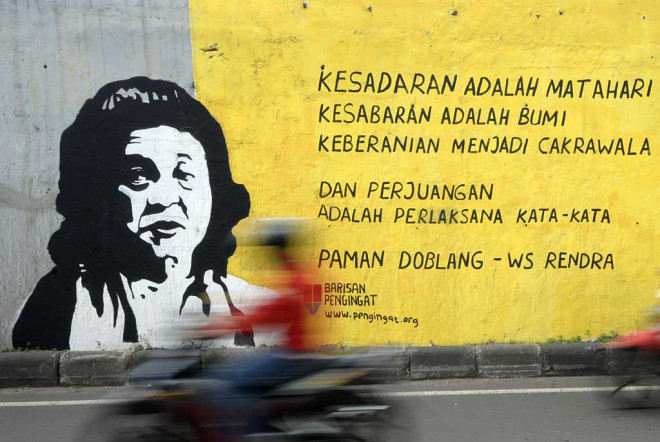 KESADARAN ADALAH MATAHARI
KESABARAN ADALAH BUMI
KEBERANIAN MENJADI CAKRAWALA
DAN PERJUANGAN
ADALAH PERLAKSANA KATA-KATA
PAMAN DOBLANG - WS RENDRA
BARISAN
PENGINGAT
www.pengingat.org